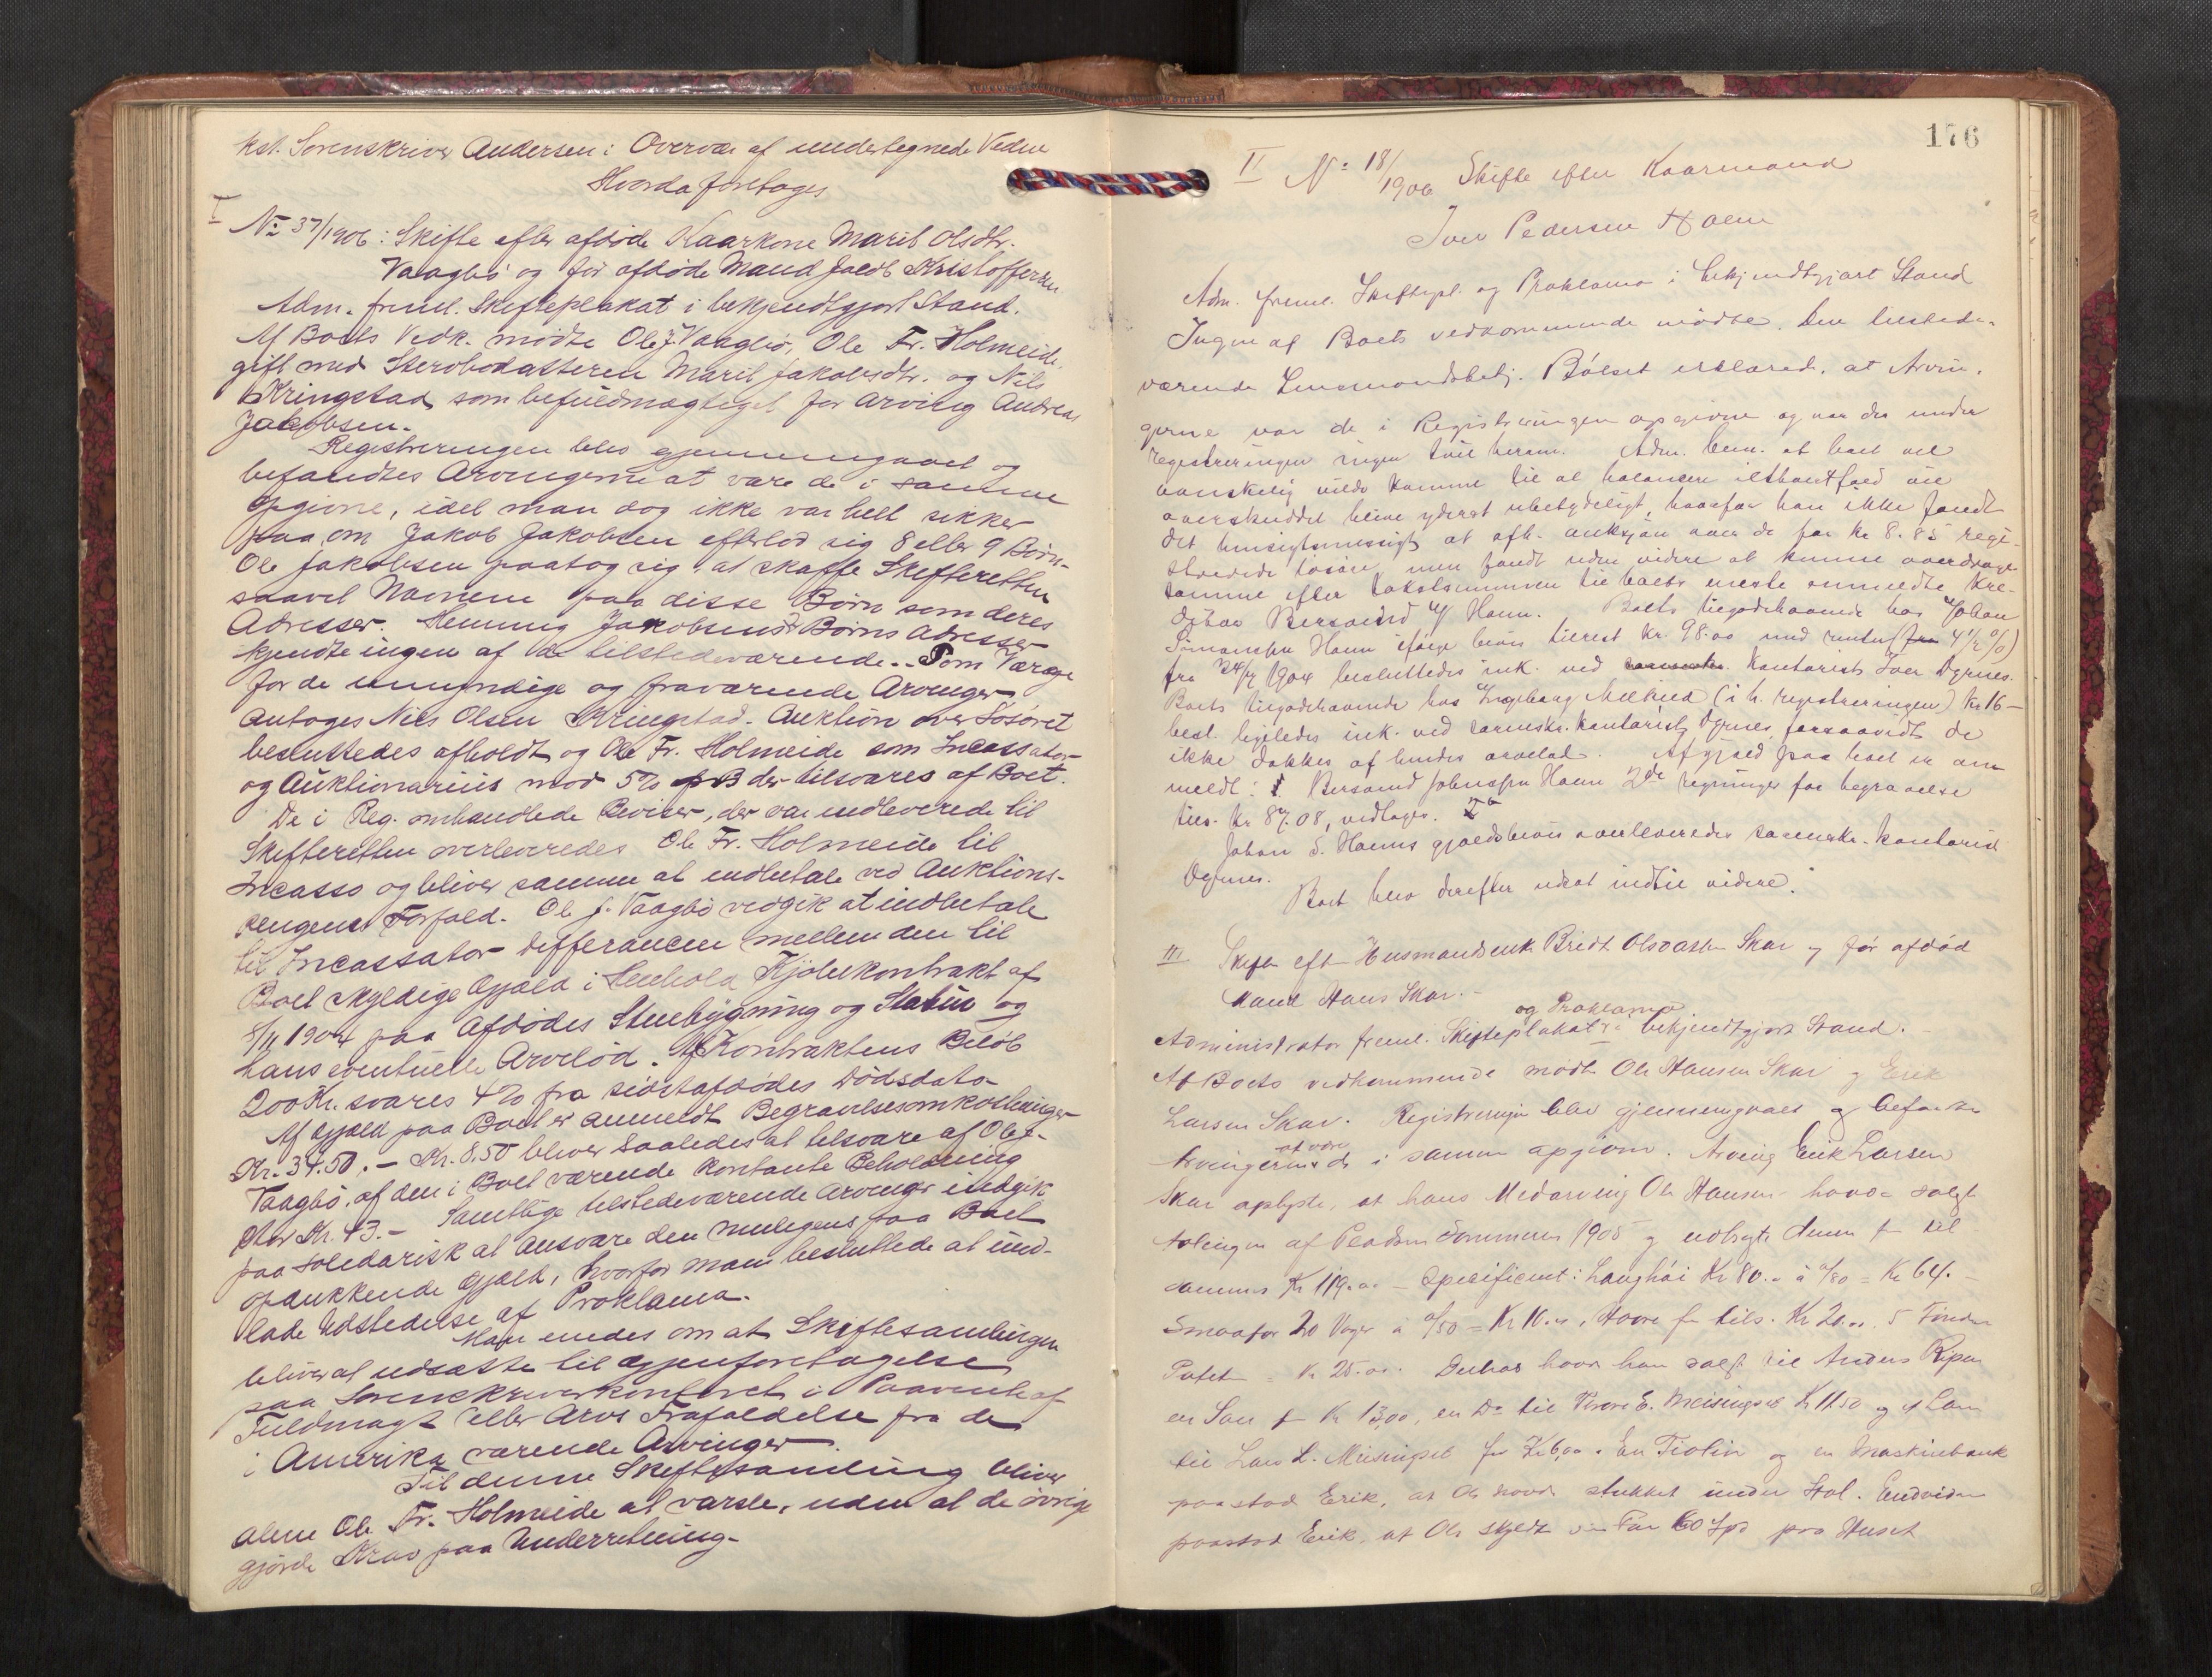 kst. Sorenskriver Andersen i Overvær af undertegnede Vidne
Hvorda foretoges
I
No 37/1906: Skifte efter afdøde Kaarkone Marit Olsdtr.
Vaagbø og før afdøde Mand Jacob Kristoffersen
Adm. freml. Skifteplakat i bekjendtgjort Stand.
Af Boets Vedk. mødte Ole J. Vaagbø, Ole Fr. Holmeide
gift med Stervbodatteren Marit Jakobsdtr. og Nils
Kringstad som befuldmægtiget for Arving Andreas
Jakobsen.
Registreringen blev gjennemgaaet og
befandtes Arvingerne at være de i samme
opgivne, idet man dog ikke var helt sikker
paa, om Jakob Jakobsen efterlod sig 8 eller 9 Børn.
Ole Jakobsen paatog sig at skaffe Skifteretten
saavel Navnene paa disse Børn som deres
Adresser. Henning Jakobsens Børns Adresser
kjendte ingen af de tilstedeværende. Som Værge
for de umyndige og fraværende Arvinger
antoges Nils Olsen Kringstad. Auktion over Løsøret
besluttedes afholdt og Ole Fr. Holmeide som Incassator
og Auktionarius mod 5% der tilsvares af Boet.
De i Reg. omhandlede Beviser, der var indleverede til
Skifteretten overleveredes Ole Fr. Holmeide til
Incasso og bliver samme at indbetale ved Auktions-
pengenes Forfald. Ole J. Vaagbø vedgik at indbetale
til Incassator differancen mellem den til
Boet skyldige Gjæld i Henhold Kjøbekontrakt af
8/11 1904 paa Afdødes Stuebygning og Stabur og
hans eventuelle Arvelod. Af Kontraktens Beløb
200 Kr. svares 4% fra sidstafdødes Dødsdato
Af Gjæld paa Boet er anmeldt Begravelsesomkostninger
Kr. 34.50. – Kr. 8.50 bliver saaledes at tilsvare af Ole J.
Vaagbø, af den i Boet værende kontante Beholdning
stor Kr. 43.– Samtlige tilstedeværende Arvinger indgik
paa solidarisk at ansvare den muligens paa Boet
opdukkende Gjæld, hvorfor man besluttede at und-
lade Udstedelse af Proklama.
Man enedes om at Skiftesamlingen
bliver at udsætte til Gjenforetagelse
paa Sorenskriverkontoret i Paavente af
Fuldmagt eller Arvs Frafaldelse fra de
i Amerika værende Arvinger.
Til denne Skiftesamling bliver
alene Ole Fr. Holmeide at varsle, uden at de øvrige
gjorde Krav paa Underretning.
176
II No 18/1906 Skifte efter Kaarmand
Iver Pedersen Holm
Adm. freml. Skiftepl. og Proklama i bekjendtgjort Stand
Ingen af Boets vedkommende mødte. Den tilstede-
værende Lensmandsbetj. Bølset erklærede, at Arvin-
gerne var de i Registreringen opgivne og var der under
registreringen ingen tvil herom. Adm. bem. at boet vel
vanskelig vilde komme til at balancere iethvertfald vil
overskuddet blive yderst ubetydeligt, hvorfor han ikke fandt
det hensigtsmessigt at afh. auksjon over de for kr 8.85 regi-
strerede løsøre, men fandt uden videre at kunne overdrage
samme efter takstsummen til boets eneste anmeldte Kre-
ditor Bersvend Hann. Boets tilgodehavende hos Johan
Simonsen Hann ifølge bevis tilrest kr. 98.00 med renter (4 1/2 %)
fra 24/4 1904 besluttedes ink. ved Kontorist Iver Dyrnes.
Boets tilgodehavende hos Ingeborg (i h. registreringen) kr 16 –
besl. ligeledes ink. ved sorenskr. kontorist Dyrnes forsaavidt de
ikke dækkes af hendes arvelod. Af gjæld paa boet er an-
meldt: 1. Bersvend Johnsen Hann 2de regninger for begravelse
tils. kr 87.08, vedlages.
Johan S. Hanns gjældsbevis overleveredes sorenskr. kontorist
Dyrnes.
Boet blev derefter udsat indtil videre.
III Skifte eft Husmandsenke Bridt Olsdatter Skar og før afdød
Mand Hans Skar.
Administrator freml. Skifteplakat og Proklama i bekjendtgjort Stand.
Af Boets vedkommende mødte Ole Hansen Skar og Erik
Larsen Skar. Registreringen blev gjennemgaaet og befandtes
Arvingerne at være de i samme opgivne. Arving Erik Larsen
Skar oplyste, at hans Medarving Ole Hansen havde solgt
Avlingen af Pladsen Sommeren 1905 og udbragte denne til
sammen Kr 119.00 – Specificeret: Langhøi Kr 80.. à 0/80 = Kr 64. –
Smaafor 20 Voger à 0/50 = Kr 10.00, Havre for tils. Kr 20... 5 Tønder
Potet = Kr 25.00. Desuden havde han solgt til Anders Ripen
en Sau f Kr 13,00, en Do til E. Meisingset Kr 11.50 og et Lam
til Lars L. Meisingset for Kr 6,00. En Fiolin og en
paastod Erik, at Ole havde stukket under Stol. Endvidere
paastod Erik, at Ole skyldte sin Far 60 Spd paa Huset